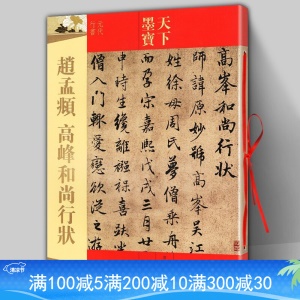 天下
墨寶
趙孟頫 高峰和尚行狀
高峯和尚行狀
師諱原妙號高峯吳江
姓徐母周氏夢僧乘舟
而孕宋嘉熙戊戌三月廿
申時生纔離襁褓喜趺坐
僧入門輒愛戀欲從之
满100减5满200减10满300减30